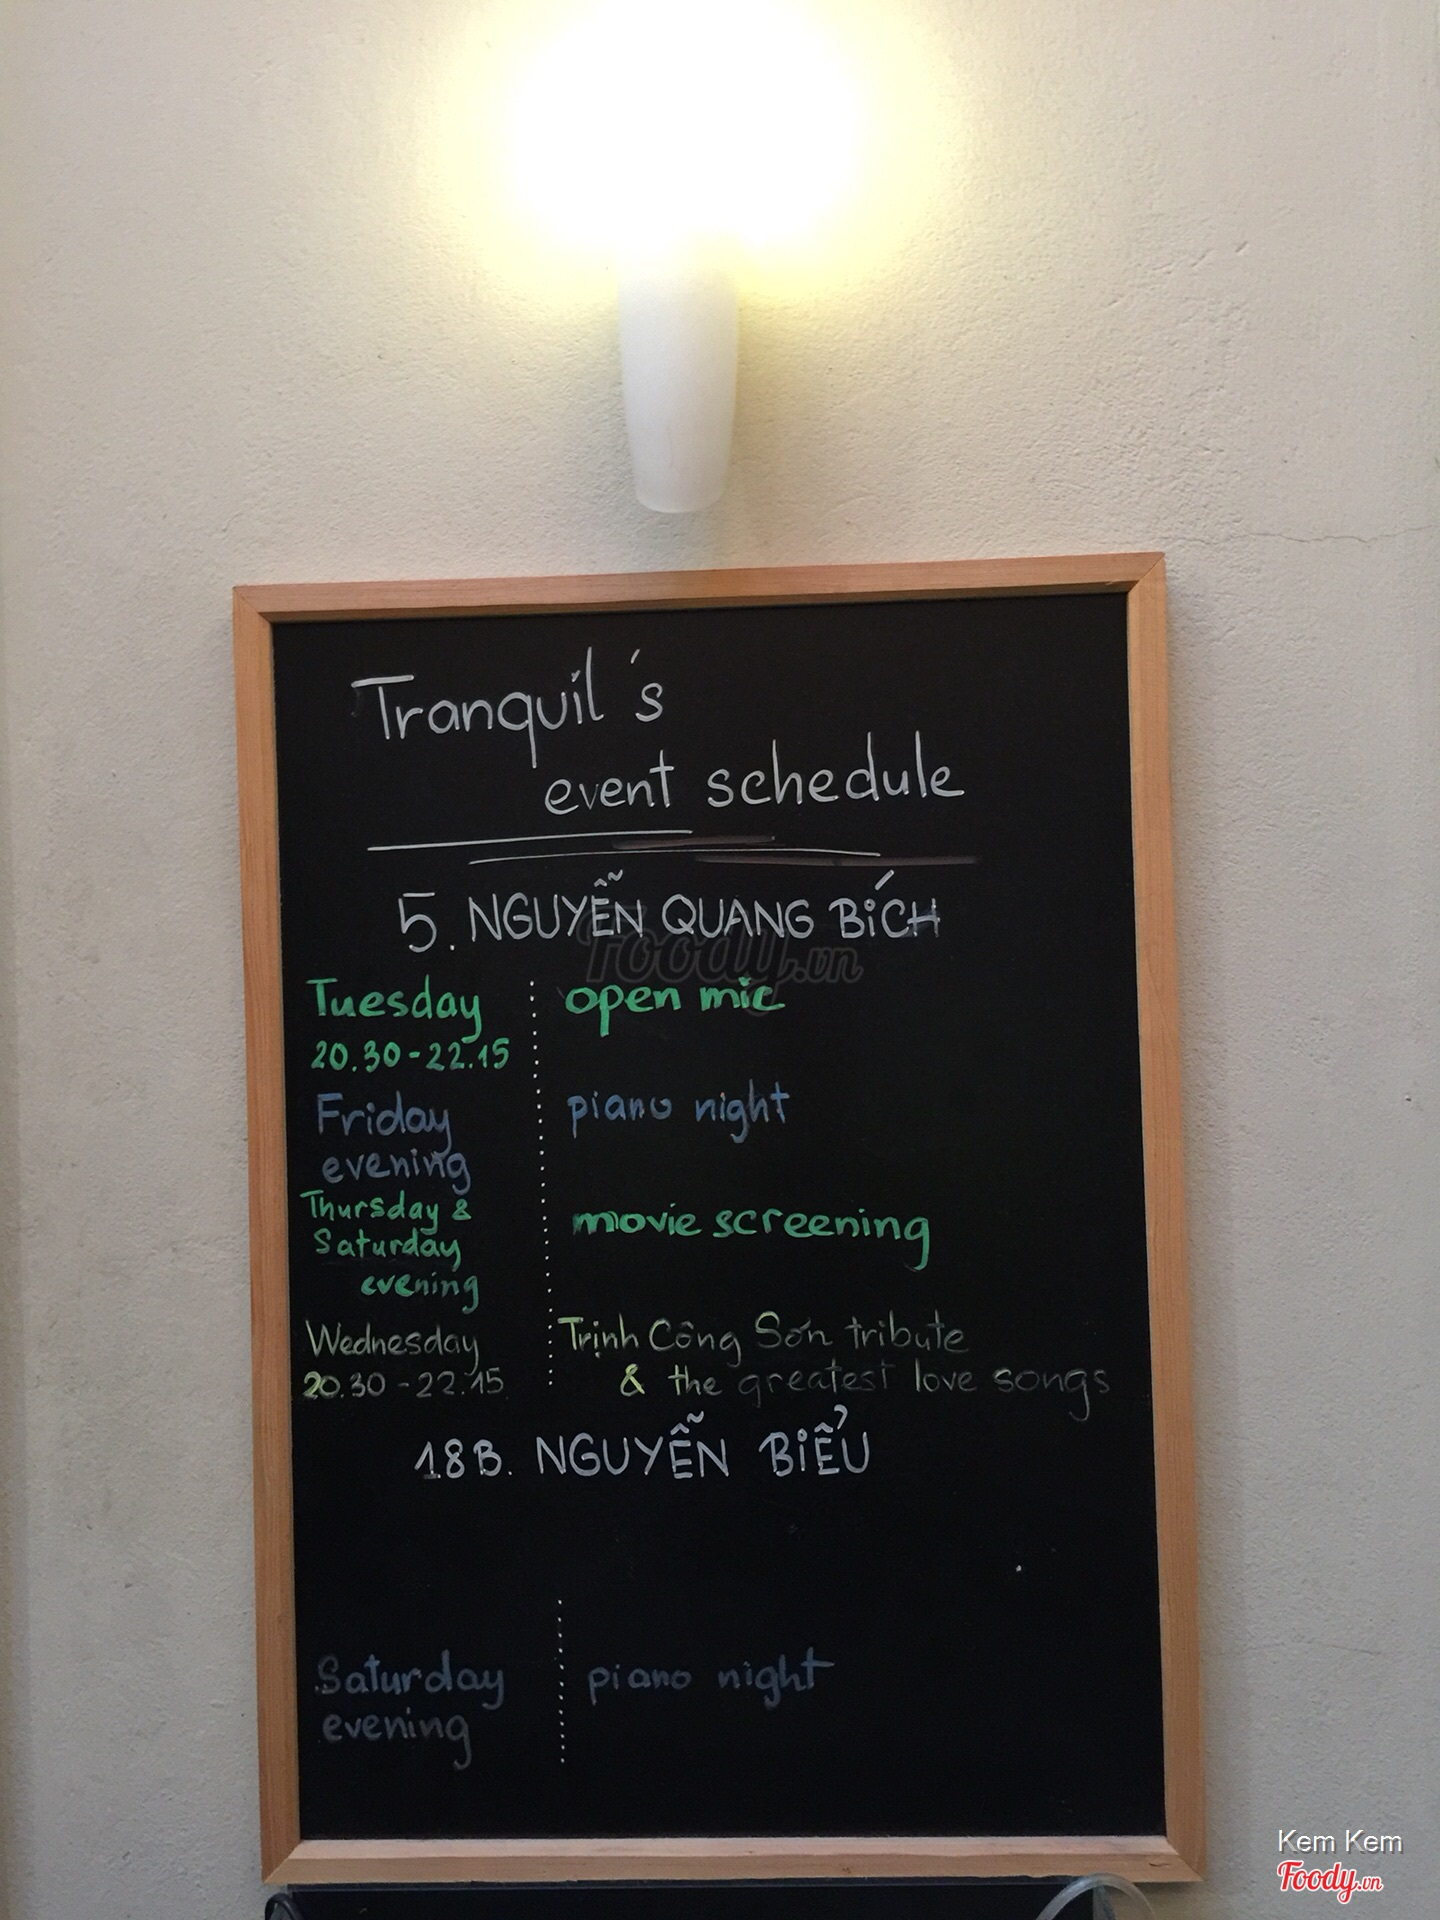 Tranquil's
event schedule
5. NGUYỄN QUANG BÍCH
Foody.vn
Tuesday open mic
20.30-22.15
Friday piano night
evening
Thursday &
Saturday movie screening
evening
Wednesday Trịnh Công Sơn tribute
20.30-22.15 & the greatest love songs
18B. NGUYỄN BIỂU
Saturday piano night
evening
Kem Kem
Foody.vn